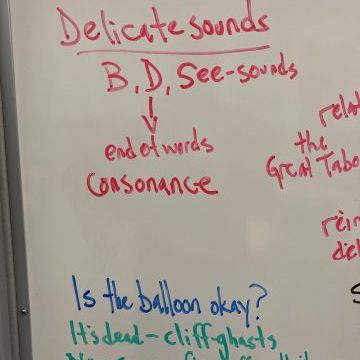 Delicate sounds
B, D, See-sounds
end of words
consonance
the
Great
Is the balloon okay?
It's dead - cliff-ghasts